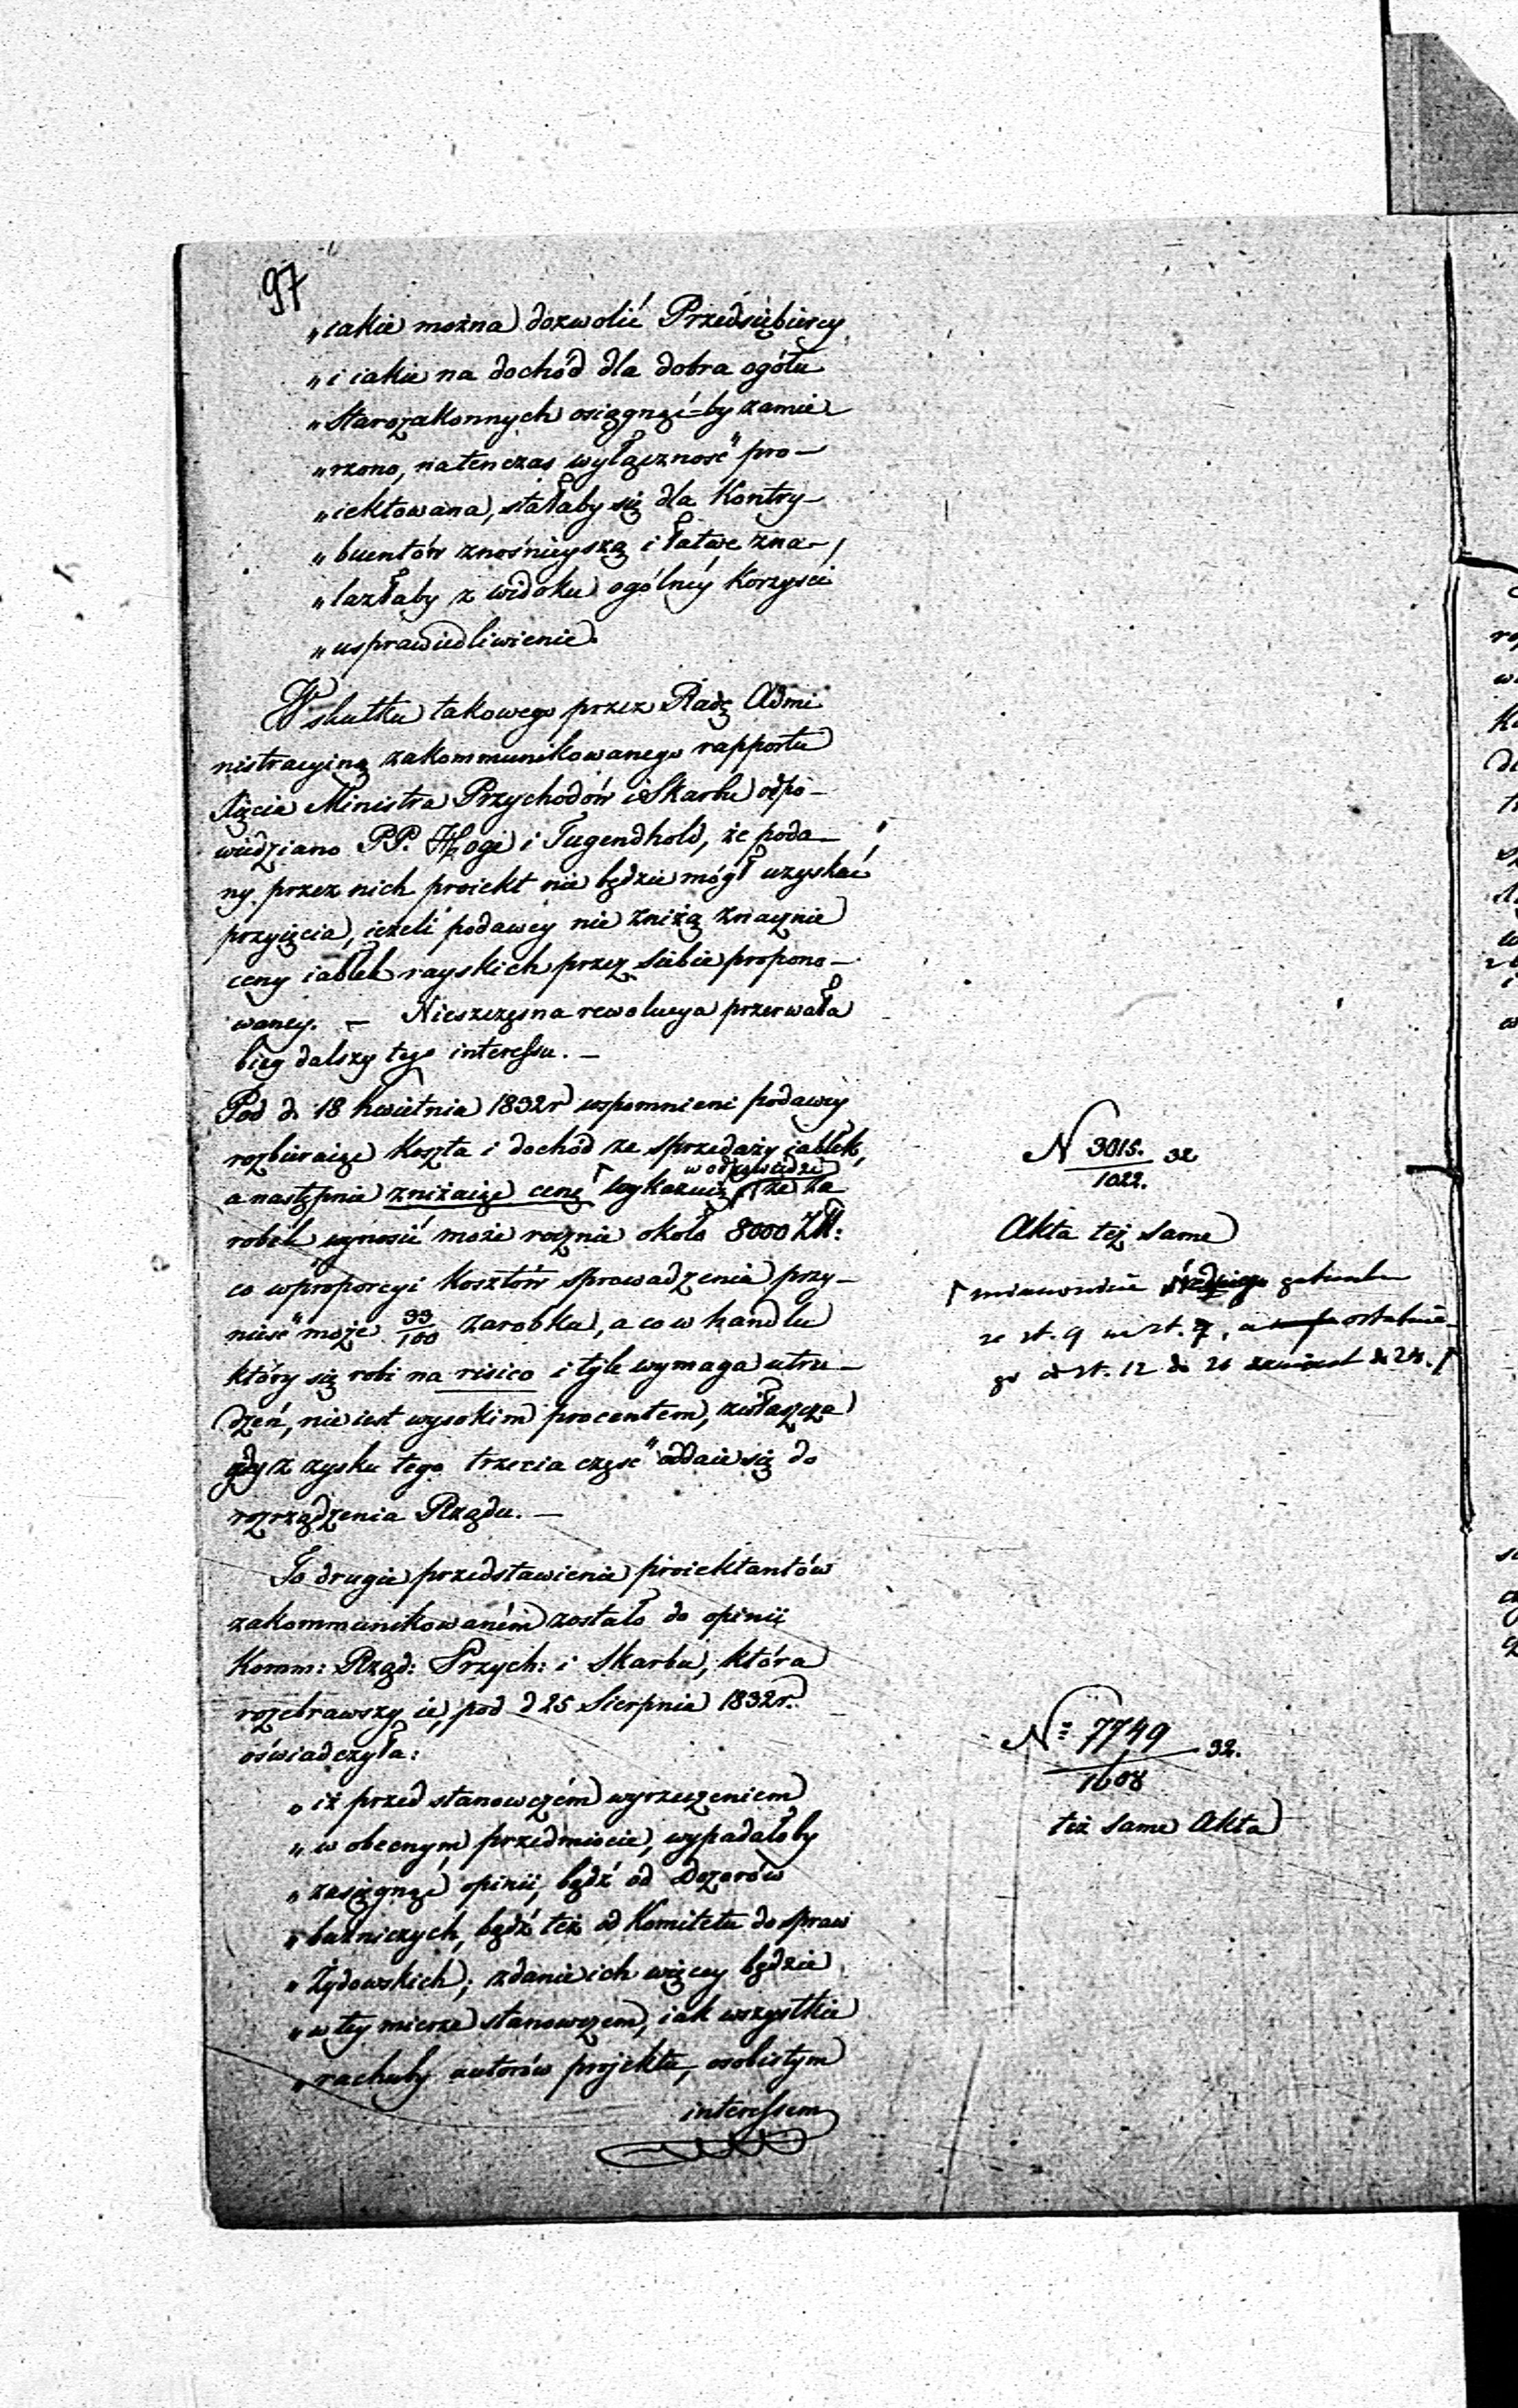 97
„iakie można dozwolić Przedsiębiercy
„i iakie na dochód dla dobra ogółu
„Starozakonnych osiągnąć-by zamie-
„rzono, natenczas wyłączność pro-
„iektowana, stałaby się dla Kontry-
„buentów znośnieyszą i łatwe zna-
„lazłaby z widoku ogólnéy Korzyści
„usprawiedliwienie.
Wskutku takowego przez Radę Admi
nistracyiną zakommunikowanego rapportu
Xięcia Ministra Przychodów i Skarbu odpo-
wiedziano PP. Hoge i Tugendhold, że poda-
ny przez nich proiekt nie będzie mógł uzyskać
przyięcia, ieżeli podawcy nie zniżą znacznie
ceny iabłek rayskich przez siebie propono-
waney. — Nieszczęsna rewolucya przerwała
bieg dalszy tego interessu. —
Pod d. 18 Kwietnia 1832r wspomnieni podawcy
rozbieraiąc Koszta i dochód ze sprzedaży iabłek,
a następnie zniżaiąc cenę wykazuią w odpowiedzi że za
robek wynosić może rocznie około 8000 Zł:
co w proporcyi Kosztów sprowadzenia przy-
nieść może 33/100 zarobku, a co w handlu
który się robi na risico i tyle wymaga utru-
dzeń, nie iest wysokim procentem, zwłaszcza
gdy z zysku tego trzecia część oddaie się do
rozrządzenia Rządu. —
To drugie przedstawienie proiektantów
zakommunikowaném zostało do opinii
Komm: Rząd: Przych: i Skarbu, która
rozebrawszy ie, pod d 25 Sierpnia 1832r.
oświadczyła:
„iż przed stanowczém wyrzeczeniem
„w obecnym przedmiocie, wypadałoby
„zasięgnąć opinii, bądź od Dozorów
„bużniczych, bądź też od Komitetu do spraw
„Żydowskich; zdanie ich więcey będzie
„w tey mierze stanowczem, iak wszystkie
„rachuby autorów projektu, osobistym
interessem
N 3015. 32
1022.
Akta też same
mianowicie średniego gatunku
ze zł. 9 na zł. 7, a ostatnie-
go od zł. 12 do 20 zamiast do 24.
N: 7749 32.
1608
też same Akta